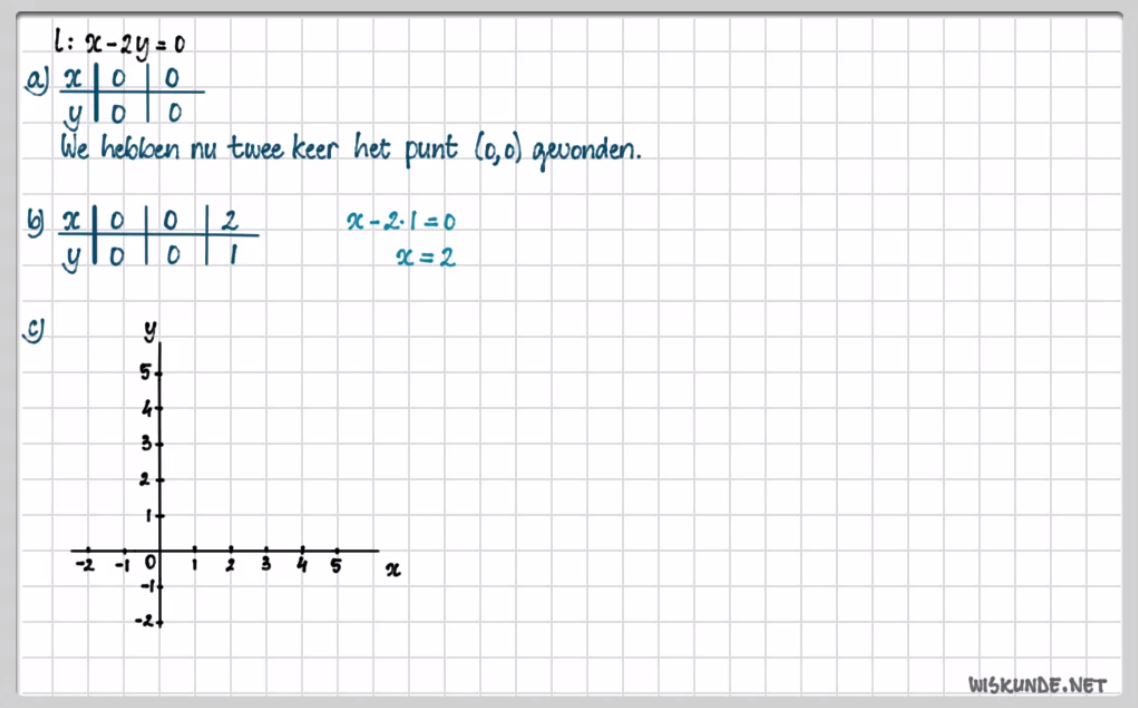 l: x - 2y = 0
a) x | 0 | 0
y | 0 | 0
We hebben nu twee keer het punt (0,0) gevonden.
b) x | 0 | 0 | 2
y | 0 | 0 | 1
x - 2·1 = 0
x = 2
c)
y
5
4
3
2
1
-2 -1 0 1 2 3 4 5 x
-1
-2
WISKUNDE.NET